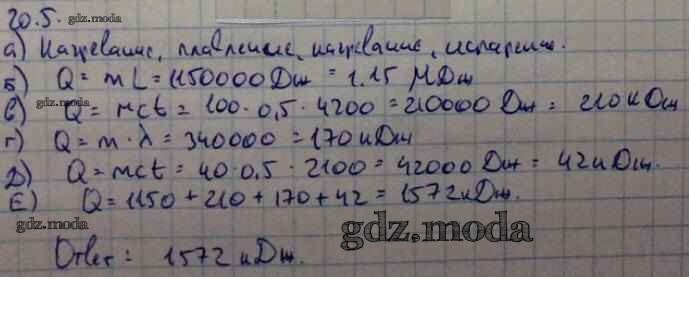 20.5. gdz.moda
а) Нагревание, плавление, нагревание, испарение.
Б) Q = m L = 1150000 Дж = 1.15 МДж
в) gdz.moda Q = mct = 100 · 0,5 · 4200 = 210000 Дж = 210 кДж
г) Q = m · λ = 340000 = 170 кДж
Д) Q = mct = 40 · 0.5 · 2100 = 42000 Дж = 42 кДж.
Е) Q = 1150 + 210 + 170 + 42 = 1572 кДж.
gdz.moda
gdz.moda
Ответ: 1572 кДж.